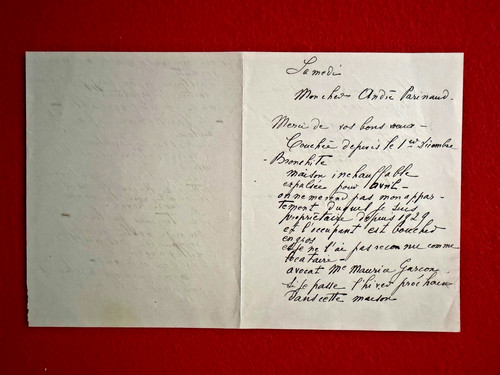 Samedi
Mon cher André Parinaud -
Merci de vos bons vœux -
Couchée depuis le 1er décembre
- Bronchite
maison inchauffable
expulsée pour avril -
on ne me rend pas mon appar -
tement duquel je suis
propriétaire depuis 1929
et l'occupant est boucher
en gros
et je ne l'ai pas reconnu comme
locataire -
avocat Me Maurice Garçon.
Si je passe l'hiver prochain
dans cette maison